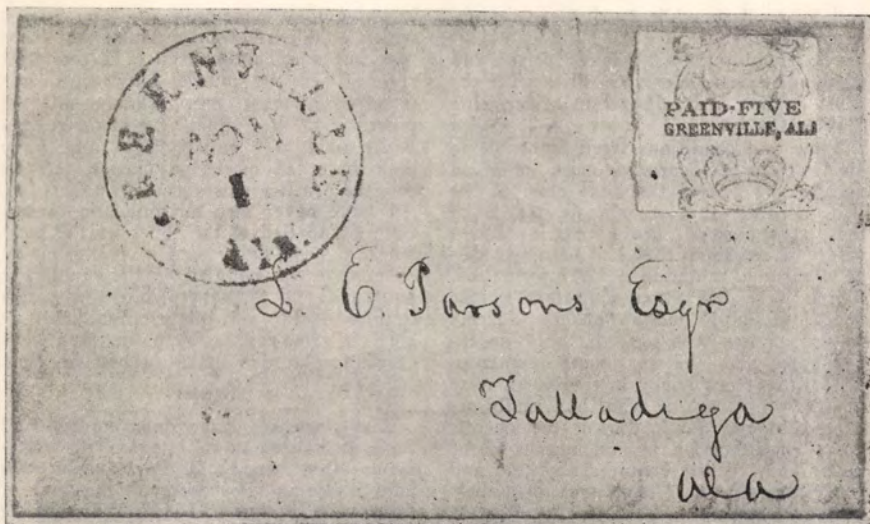 GREENVILLE
NOV
1
ALA.
PAID-FIVE
GREENVILLE, ALA
L. E. Parsons Esqr
Talladega
Ala